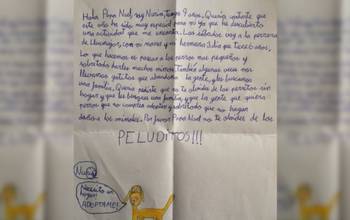 Hola Papa Noel, soy Nuria, tengo 9 años. Quería contarte que
este año ha sido muy especial para mi ya que he descubierto
una actividad que me encanta. Los sábados voy a la perrera
de Llevamos, con mi mamá y mi hermana Julia que tiene 6 años.
Lo que hacemos es pasear a los perros mas pequeños y
sobretodo darles muchos mimos. También algunas veces nos
llevamos gatitos que abandona la gente, y les buscamos
una familia. Quería pedirte que no te olvides de los perritos sin
hogar y que les busques una familia, y que la gente que quiera
perros que no compre adopte y sobretodo que no hagan
daño a los animales. Por favor Papa Noel no te olvides de los
PELUDITOS!!!
Nuria
Necesito un
hogar
ADOPTAME!